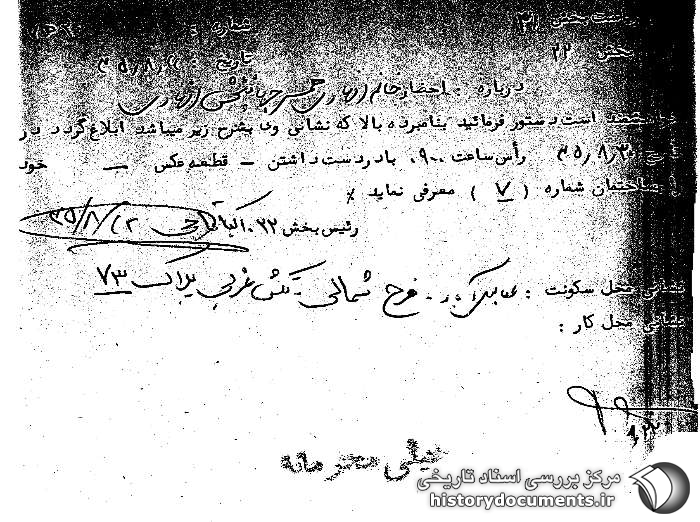 ریاست بخش ۲۱
شماره :
بخش ۲۲
تاریخ : ۳۵/۸/
درباره : احضار خانم ازهاری همسر جهانبخش ازهاری
خواهشمند است دستور فرمائید بنامبرده بالا که نشانی وی بشرح زیر میباشد ابلاغ گردد در
تاریخ ۳۵/۸/۳۰ رأس ساعت ۰۹۰۰ با در دست داشتن - قطعه عکس — خود
ساختمان شماره ( ۷ ) معرفی نماید ٪
رئیس بخش ۲۲ ۳۵/۸/۱۲
نشانی محل سکونت : فرح شمالی غربی پلاک ۷۳
نشانی محل کار :
۸/۲۲
خیلی محرمانه
مرکز بررسی اسناد تاریخی
historydocuments.ir